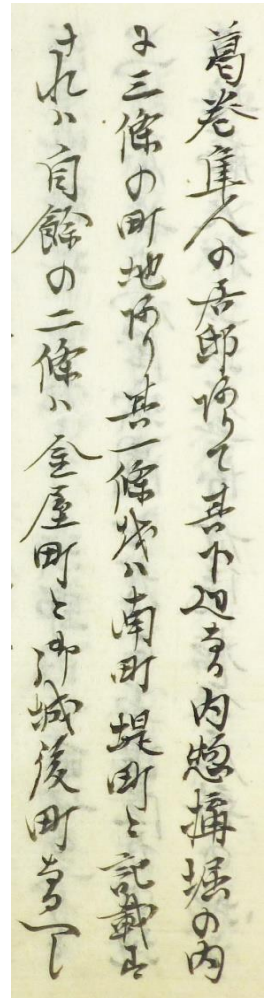 葛巻隼人の居邸ありて其下辺なる内惣構堀の内
に三條の町地あり其一條をハ南町堤町と記載す
されハ自餘の二條ハ金屋町と御城後町なるへし